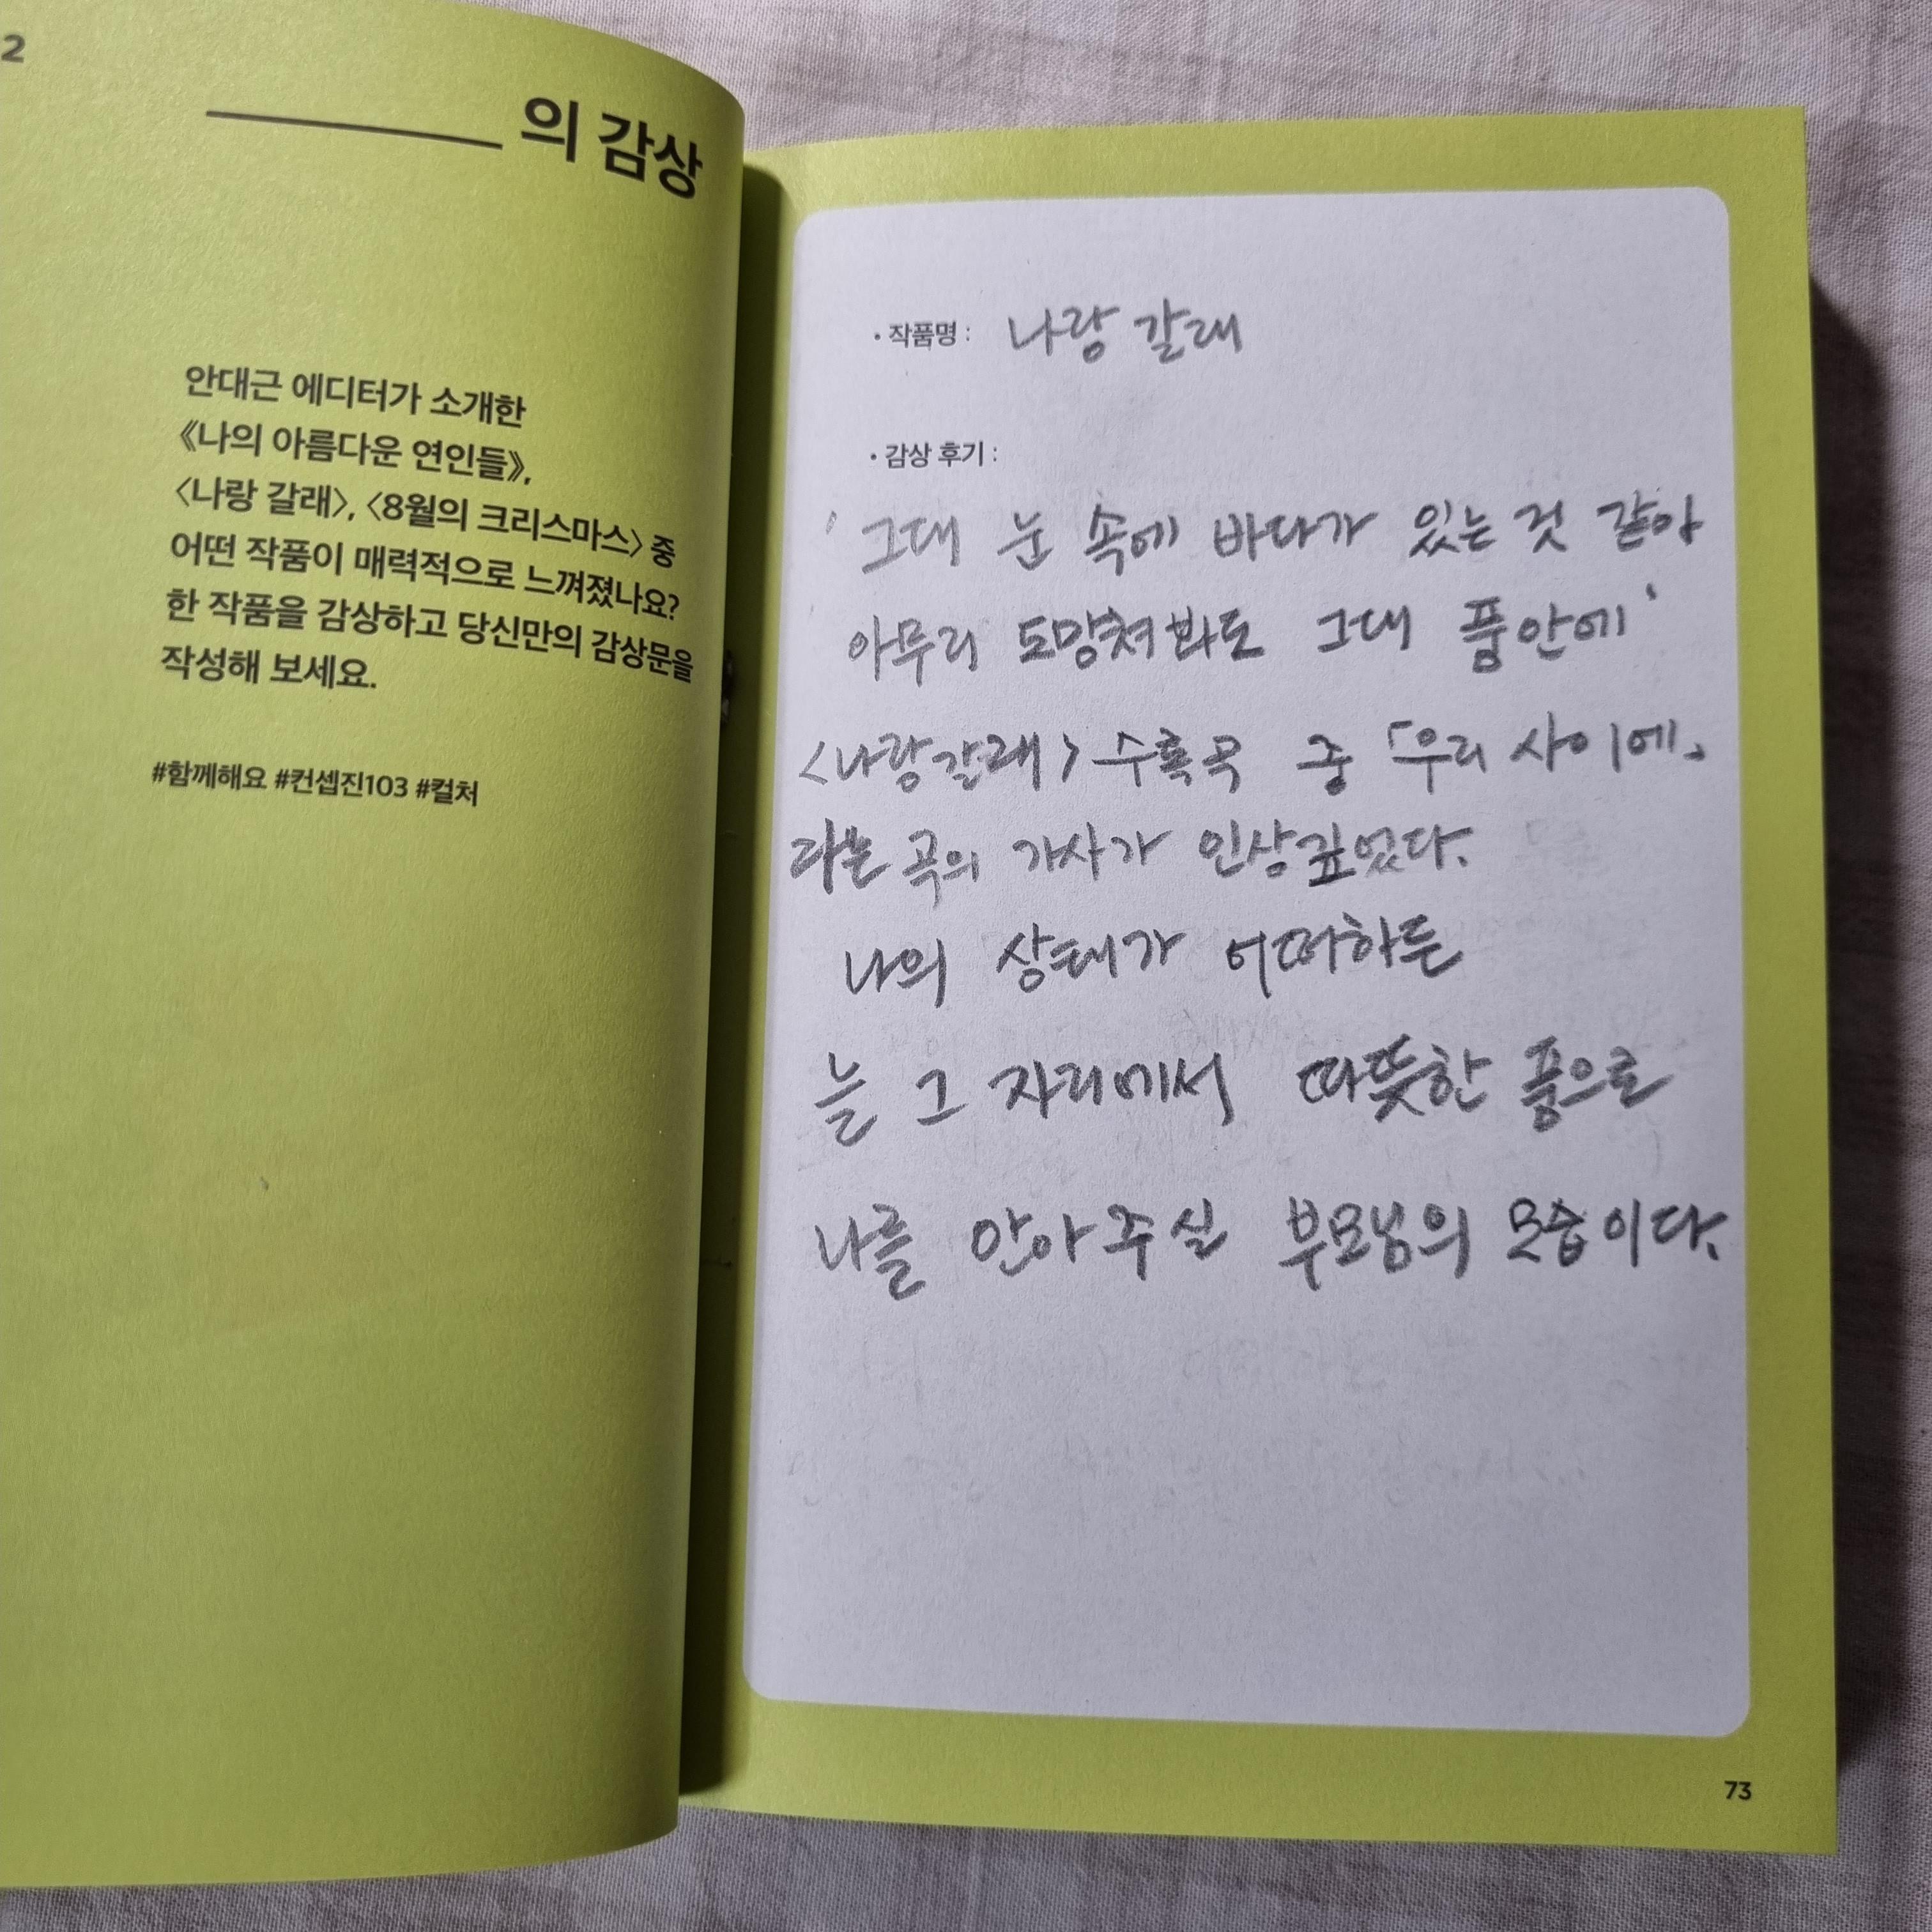 2
의 감상
안대근 에디터가 소개한
《나의 아름다운 연인들》,
〈나랑 갈래〉, 〈8월의 크리스마스〉 중
어떤 작품이 매력적으로 느껴졌나요?
한 작품을 감상하고 당신만의 감상문을
작성해 보세요.
#함께해요 #컨셉진103 #컬처
• 작품명 : 나랑 갈래
• 감상 후기 :
' 그대 눈 속에 바다가 있는 것 같아
아무리 도망쳐봐도 그대 품안에 '
<나랑갈래> 수록곡 중 「우리 사이에」
라는 곡의 가사가 인상깊었다.
나의 상태가 어떠하든
늘 그 자리에서 따뜻한 품으로
나를 안아주실 부모님의 모습이다.
73